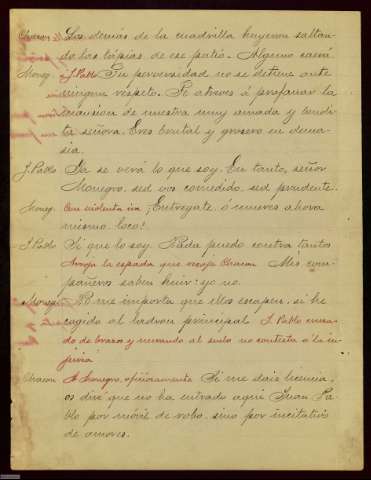 Chacon Los demás de la cuadrilla huyeron saltan-
do las tapias de ese patio. Alguno saldrá
Moneg. A J. Pablo Tu perversidad no se detiene ante
ningun respeto. Te atreves á profanar la
mansion de nuestra muy amada y bendi-
ta señora. Eres brutal y grosero en dema-
sia.
J. Pablo Ya se verá lo que soy. En tanto, señor
Monegro, sed vos comedido, sed prudente.
Moneg. Con violenta ira ¡Entregate ó mueres ahora
mismo, loco!
J. Pablo Si que lo soy. Nada puedo contra tantos
Arroja la espada que recoje Chacon Mis com-
pañeros saben huir: yo no.
Moneg. No me importa que ellos escapen, si he
cogido al ladron principal J. Pablo cruza-
do de brazos y mirando al suelo no contesta á la in-
juria
Chacon A Monegro, oficiosamente Si me dais licencia,
os diré que no ha entrado aqui Juan Pa-
blo por móvil de robo, sino por incitativo
de amores.